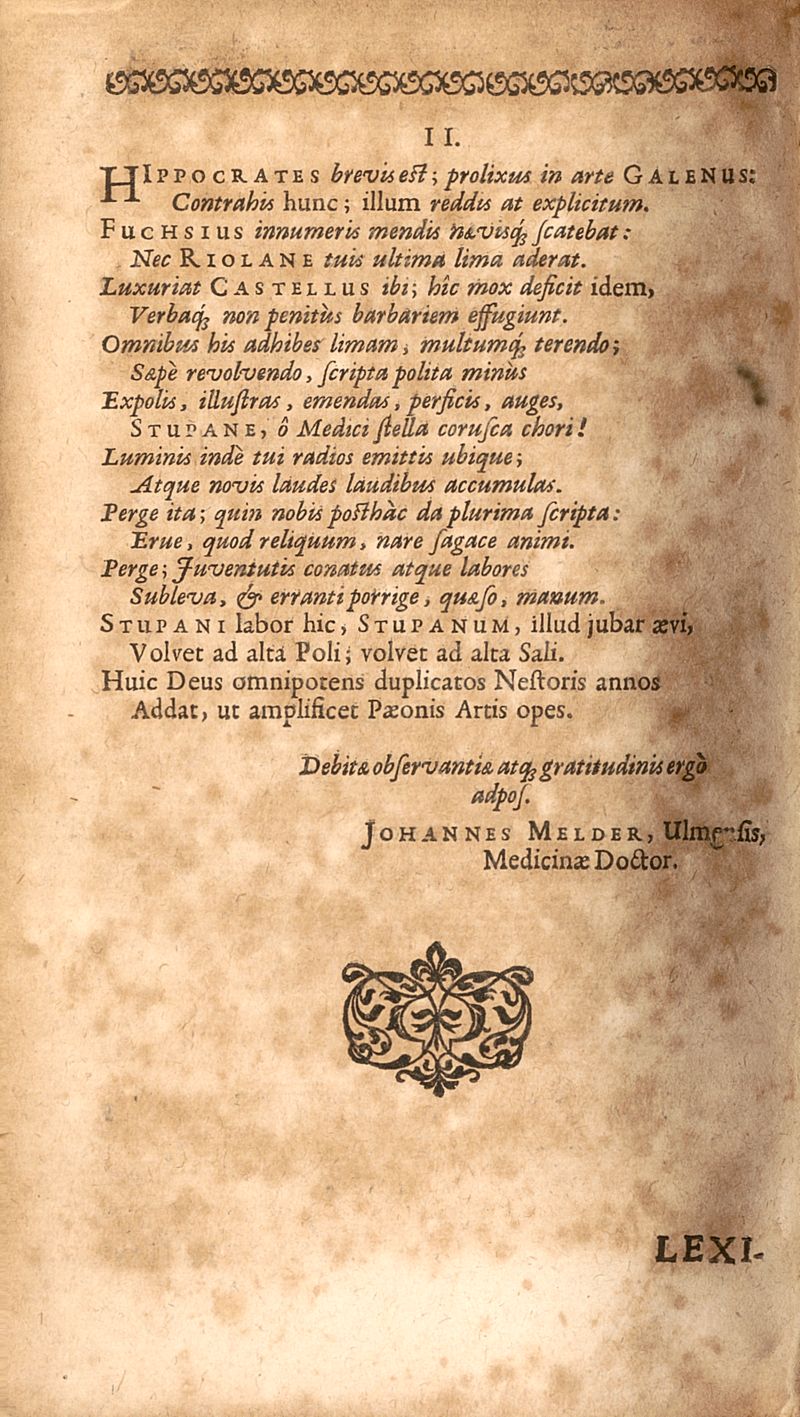 II.
HIPPOCRATES brevis est; prolixus in arte GALENUS:
Contrahis hunc; illum reddis at explicitum.
FUCHSIUS innumeris mendis nævisq́ꝫ ſcatebat:
Nec RIOLANE tuis ultima lima aderat.
Luxuriat CASTELLUS ibi; hîc mox deficit idem,
Verbaq́ꝫ non penitùs barbariem effugiunt.
Omnibus his adhibes limam, multumq́ꝫ terendo;
Sæpè revolvendo, ſcripta polita minùs
Expolis, illuſtras, emendas, perficis, auges,
STUPANE, ô Medici ſtella coruſca chori!
Luminis indè tui radios emittis ubique;
Atque novis laudes laudibus accumulas.
Perge ita; quin nobis posthàc da plurima ſcripta:
Erue, quod reliquum, nare ſagace animi.
Perge; Juventutis conatus atque labores
Subleva, & erranti porrige, quæſo, manum.
STUPANI labor hic, STUPANUM, illud jubar ævi,
Volvet ad alta Poli; volvet ad alta Sali.
Huic Deus omnipotens duplicatos Neſtoris annos
Addat, ut amplificet Pæonis Artis opes.
Debitæ obſervantiæ atqꝫ gratitudinis ergò
adpoſ.
JOHANNES MELDER, Ulmenſis,
Medicinæ Doctor.
LEXI-